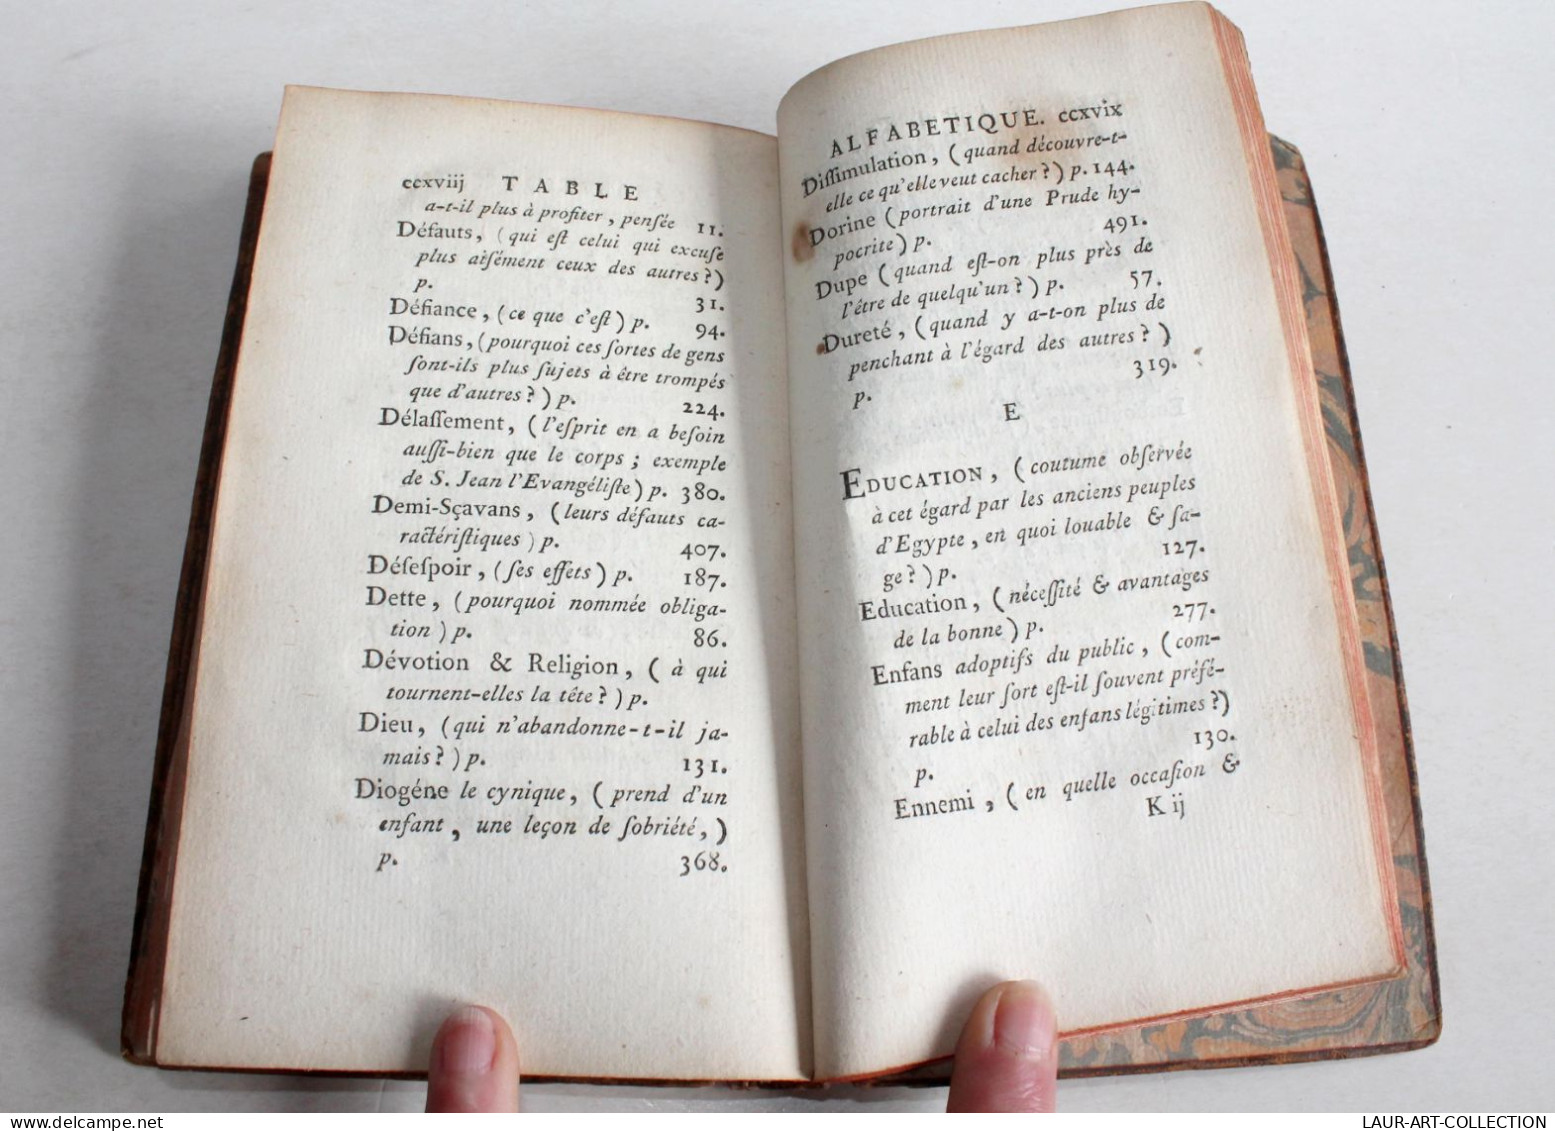 ccxviij TABLE
a-t-il plus à profiter, penſée 11.
Défauts, (qui eſt celui qui excuſe
plus aiſément ceux des autres?)
p. 31.
Défiance, (ce que c'eſt) p. 94.
Défians, (pourquoi ces ſortes de gens
ſont-ils plus ſujets à être trompés
que d'autres?) p. 224.
Délaſſement, (l'eſprit en a beſoin
auſſi-bien que le corps; exemple
de S. Jean l'Evangéliſte) p. 380.
Demi-Sçavans, (leurs défauts ca-
ractériſtiques) p. 407.
Déſeſpoir, (ſes effets) p. 187.
Dette, (pourquoi nommée obliga-
tion) p. 86.
Dévotion & Religion, (à qui
tournent-elles la tête?) p.
Dieu, (qui n'abandonne-t-il ja-
mais?) p. 131.
Diogéne le cynique, (prend d'un
enfant, une leçon de ſobriété,)
p. 368.
ALFABETIQUE. ccxvix
Diſſimulation, (quand découvre-t-
elle ce qu'elle veut cacher?) p. 144.
Dorine (portrait d'une Prude hy-
pocrite) p. 491.
Dupe (quand eſt-on plus près de
l'être de quelqu'un?) p. 57.
Dureté, (quand y a-t-on plus de
penchant à l'égard des autres?)
p. 319.
E
EDUCATION, (coutume obſervée
à cet égard par les anciens peuples
d'Egypte, en quoi louable & ſa-
ge?) p. 127.
Education, (néceſſité & avantages
de la bonne) p. 277.
Enfans adoptifs du public, (com-
ment leur ſort eſt-il ſouvent préfé-
rable à celui des enfans légitimes?)
p. 130.
Ennemi, (en quelle occaſion &
K ij
LAUR-ART-COLLECTION